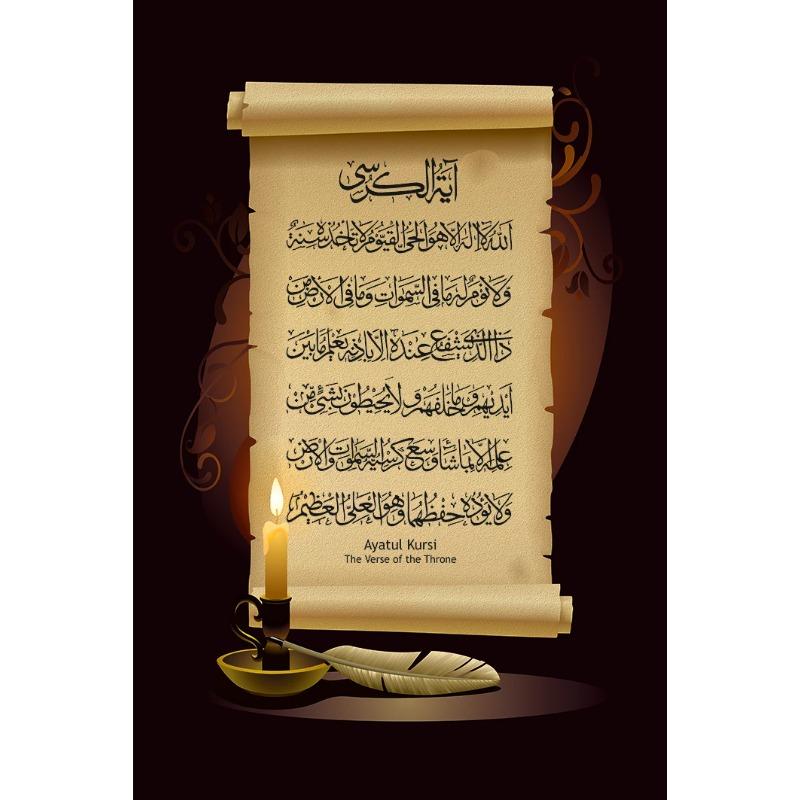 آية الكرسي
الله لا إله إلا هو الحي القيوم لا تأخذه سنة
ولا نوم له ما في السموات وما في الأرض من
ذا الذي يشفع عنده إلا بإذنه يعلم ما بين
أيديهم وما خلفهم ولا يحيطون بشيء من
علمه إلا بما شاء وسع كرسيه السموات والأرض
ولا يؤده حفظهما وهو العلي العظيم
Ayatul Kursi
The Verse of the Throne